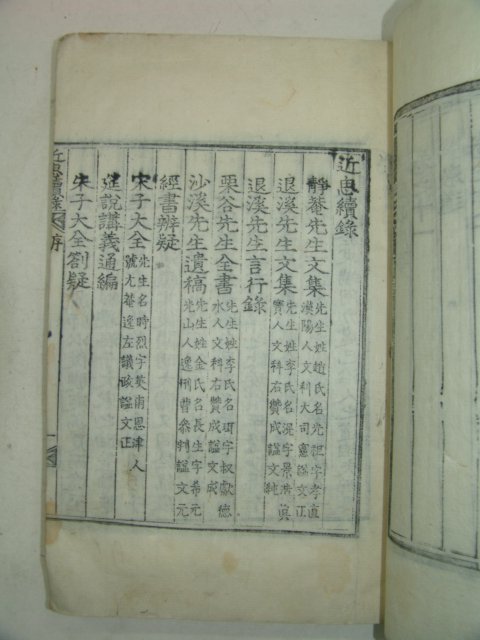 近思續錄
靜菴先生文集 先生姓趙氏名光祖字孝直
漢陽人文科大司憲謚文正
退溪先生文集 先生姓李氏名滉字景浩眞
寶人文科右贊成謚文純
退溪先生言行錄
栗谷先生全書 先生姓李氏名珥字叔獻德
水人文科右贊成謚文成
沙溪先生遺稿 先生姓金氏名長生字希元
光山人逸刑曹參判謚文元
經書辨疑
宋子大全 先生名時烈字英甫恩津人
號尤菴逸左議政謚文正
筵說講義通編
朱子大全劄疑
近思續錄 序 一